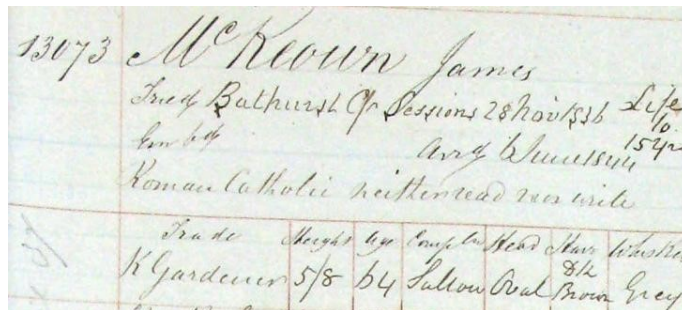 13073 McKeown James
Tried Bathurst Qr Sessions 28 Nov 1836 Life
to
Emb pd Arrd 6 June 1844 1542
Roman Catholic neither read nor write
Trade Height Age Compln Head Hair Whiskers
K Gardener 5/8 64 Sallow Oval Brown Grey